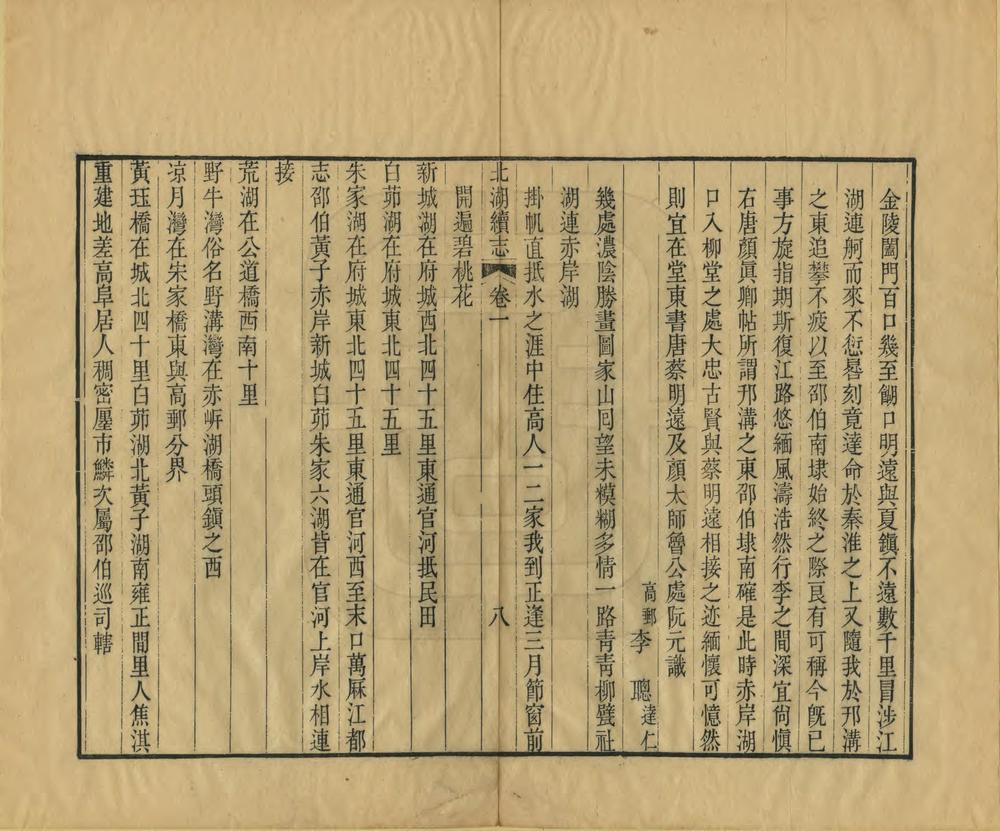 金陵闔門百口幾至餬口明遠與夏鎮不遠數千里冒涉江
湖連舸而來不愆晷刻竟達命於秦淮之上又隨我於邗溝
之東追攀不疲以至邵伯南埭始終之際良有可稱今旣已
事方旋指期斯復江路悠緬風濤浩然行李之間深宜尙愼
右唐顏眞卿帖所謂邗溝之東邵伯埭南確是此時赤岸湖
口入柳堂之處大忠古賢與蔡明遠相接之迹緬懷可憶然
則宜在堂東書唐蔡明遠及顏太師魯公處阮元識
高郵李聰達仁
幾處濃陰勝畫圖家山囘望未糢糊多情一路靑靑柳甓社
湖連赤岸湖
掛帆直抵水之涯中住高人一二家我到正逢三月節窗前
北湖續志 卷一 八
開遍碧桃花
新城湖在府城西北四十五里東通官河抵民田
白茆湖在府城東北四十五里
朱家湖在府城東北四十五里東通官河西至末口萬厤江都
志邵伯黃子赤岸新城白茆朱家六湖皆在官河上岸水相連
接
荒湖在公道橋西南十里
野牛灣俗名野溝灣在赤岍湖橋頭鎮之西
凉月灣在宋家橋東與高郵分界
黃珏橋在城北四十里白茆湖北黃子湖南雍正間里人焦淇
重建地差高阜居人稠密廛市鱗次屬邵伯巡司轄